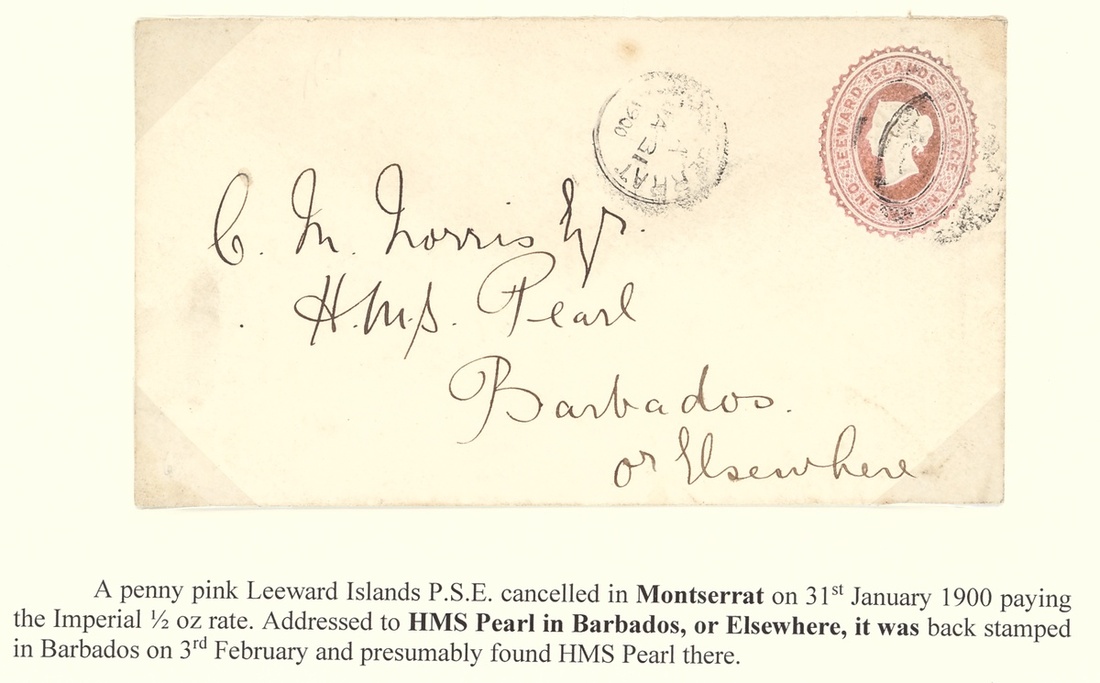 LEEWARD ISLANDS POSTAGE
ONE PENNY
JA 31
1900
C. M. Norris Esqr.
H.M.S. Pearl
Barbados.
or Elsewhere
A penny pink Leeward Islands P.S.E. cancelled in Montserrat on 31st January 1900 paying
the Imperial ½ oz rate. Addressed to HMS Pearl in Barbados, or Elsewhere, it was back stamped
in Barbados on 3rd February and presumably found HMS Pearl there.